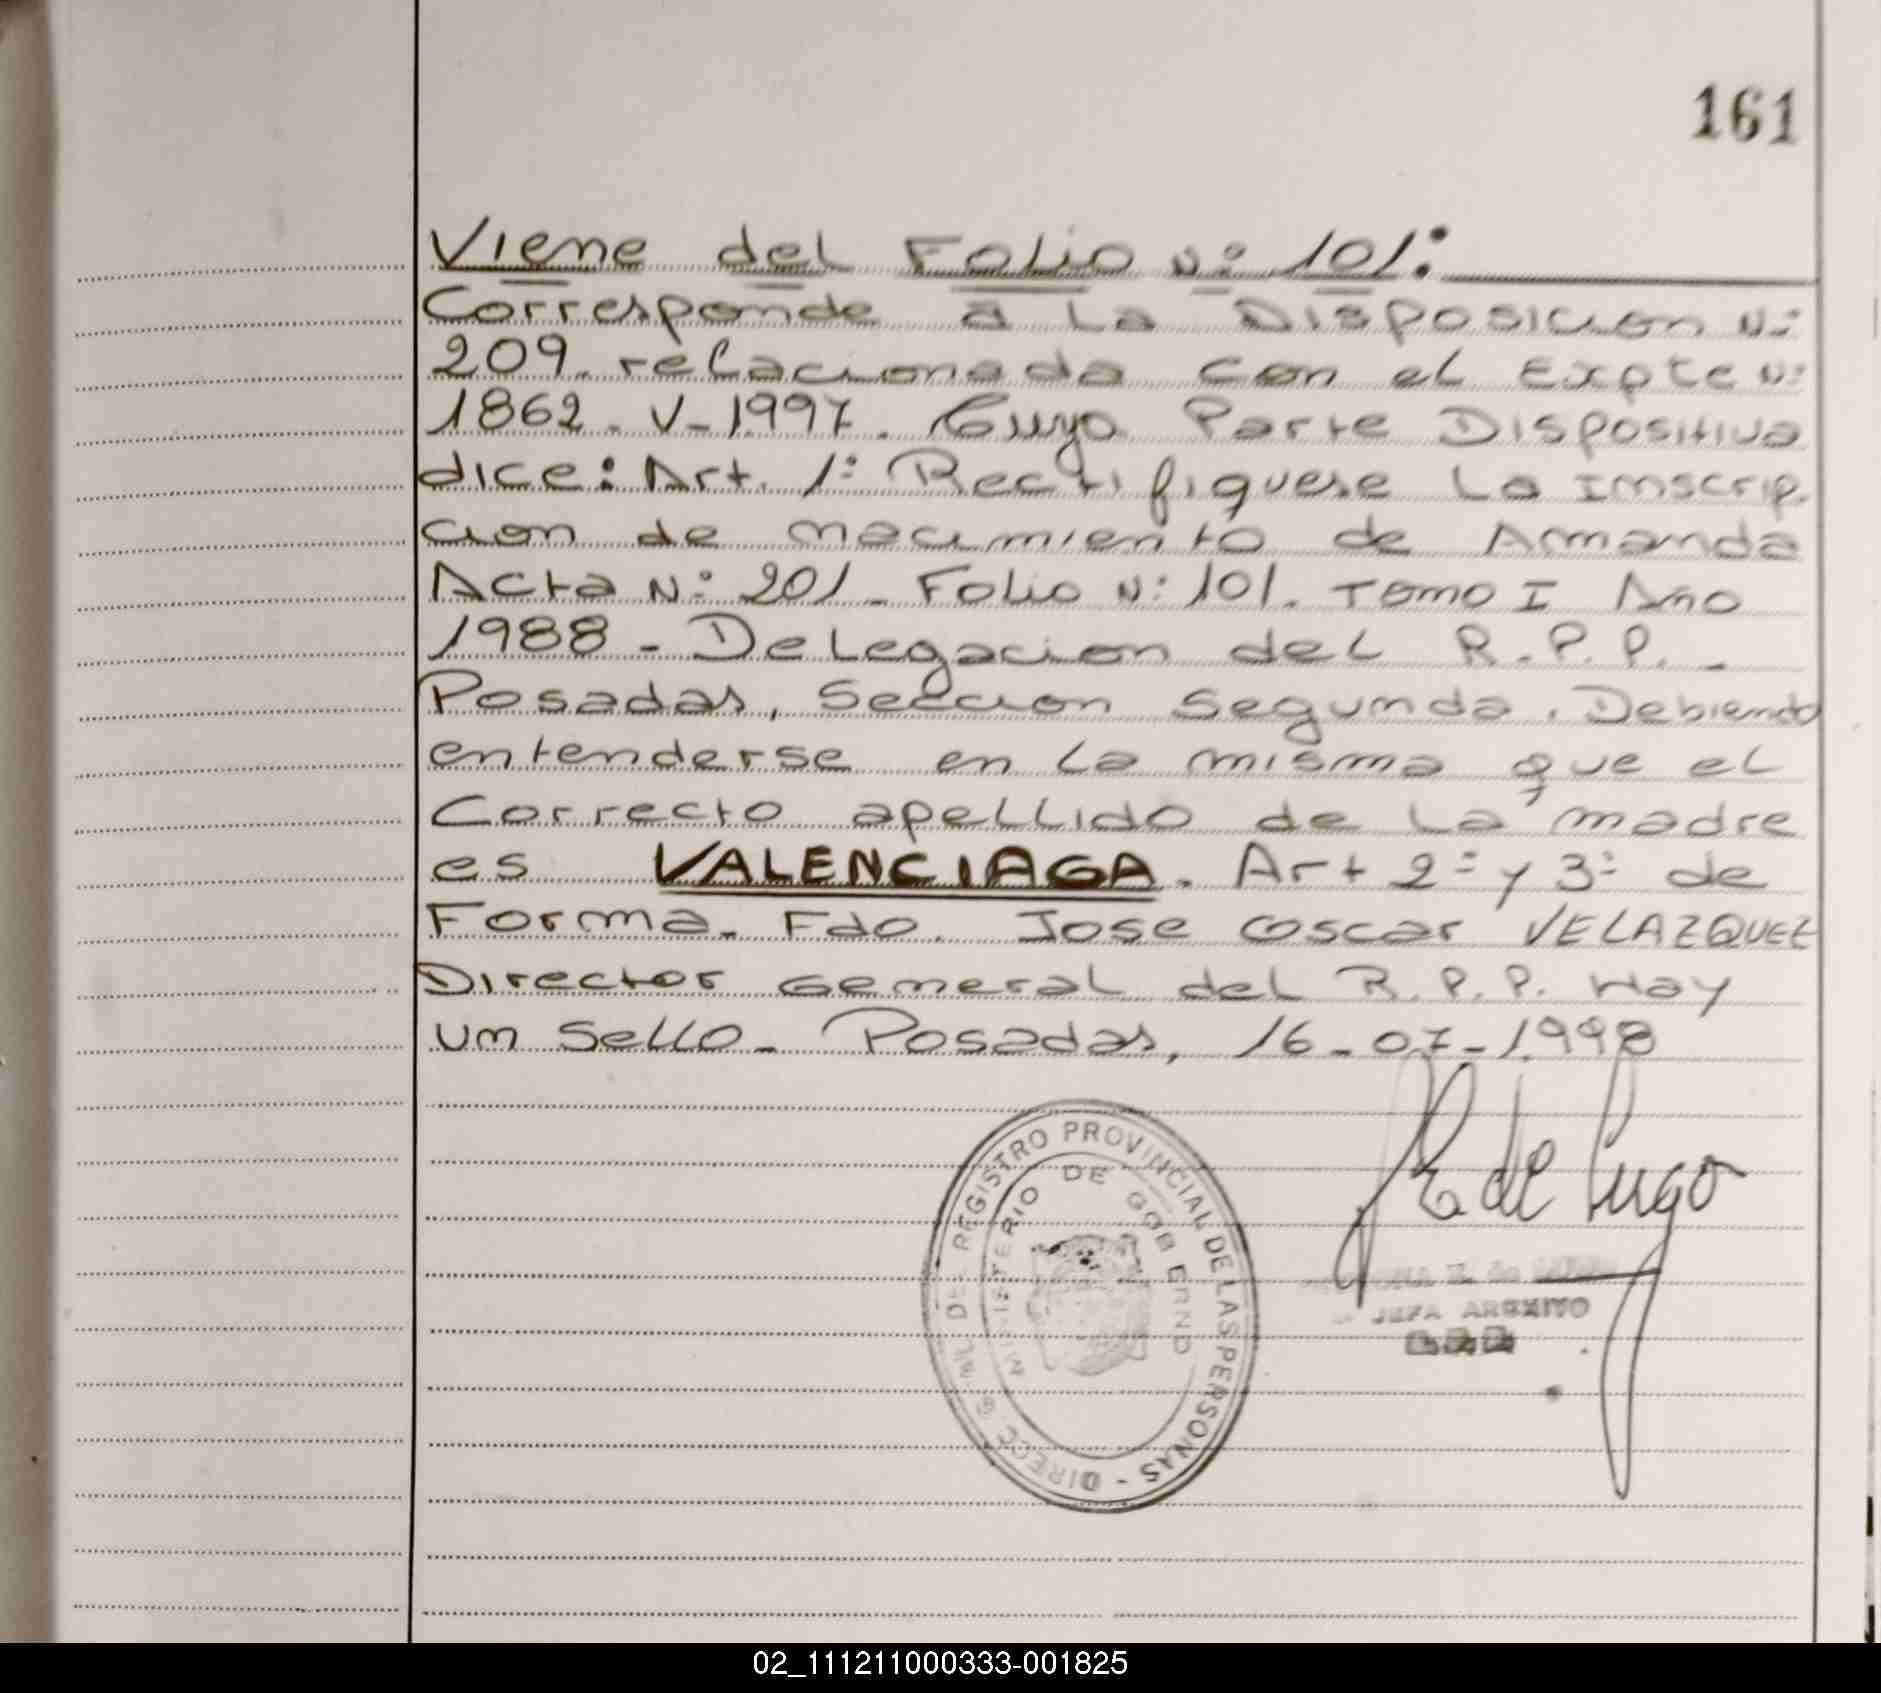 161
Viene del Folio Nº 101:
Corresponde a la Disposicion Nº
209. relacionada con el Expte Nº
1862. V-1997. Cuya Parte Dispositiva
dice: Art. 1º Rectifiquese la inscrip.
cion de nacimiento de Amanda
Acta Nº 201. Folio Nº 101. Tomo I Año
1988 - Delegacion del R.P.P. -
Posadas, Seccion Segunda. Debiendo
entenderse en la misma que el
Correcto apellido de la madre
es VALENCIAGA. Art 2º y 3º de
Forma. Fdo. Jose Oscar VELAZQUEZ
Director General del R.P.P. Hay
un Sello - Posadas, 16-07-1998
REGISTRO PROVINCIAL DE LAS PERSONAS - DIRECC
MINISTERIO DE GOBIERNO
E de Lugo
JEFA ARCHIVO
02_111211000333-001825